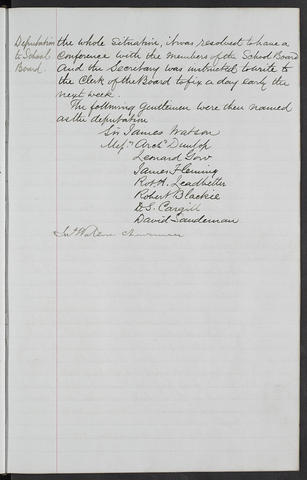 Deputation
to School
Board.
the whole situation, it was resolved to have a
Conference with the Members of the School Board
And the Secretary was instructed to write to
the Clerk of the Board to fix a day early the
next week.
The following Gentlemen were then named
as the deputation
Sir James Watson
Messrs Archd Dunlop
Leonard Gow
James Fleming
Robt. H. Leadbetter
Robert Blackie
D. S. Cargill
David Sandeman